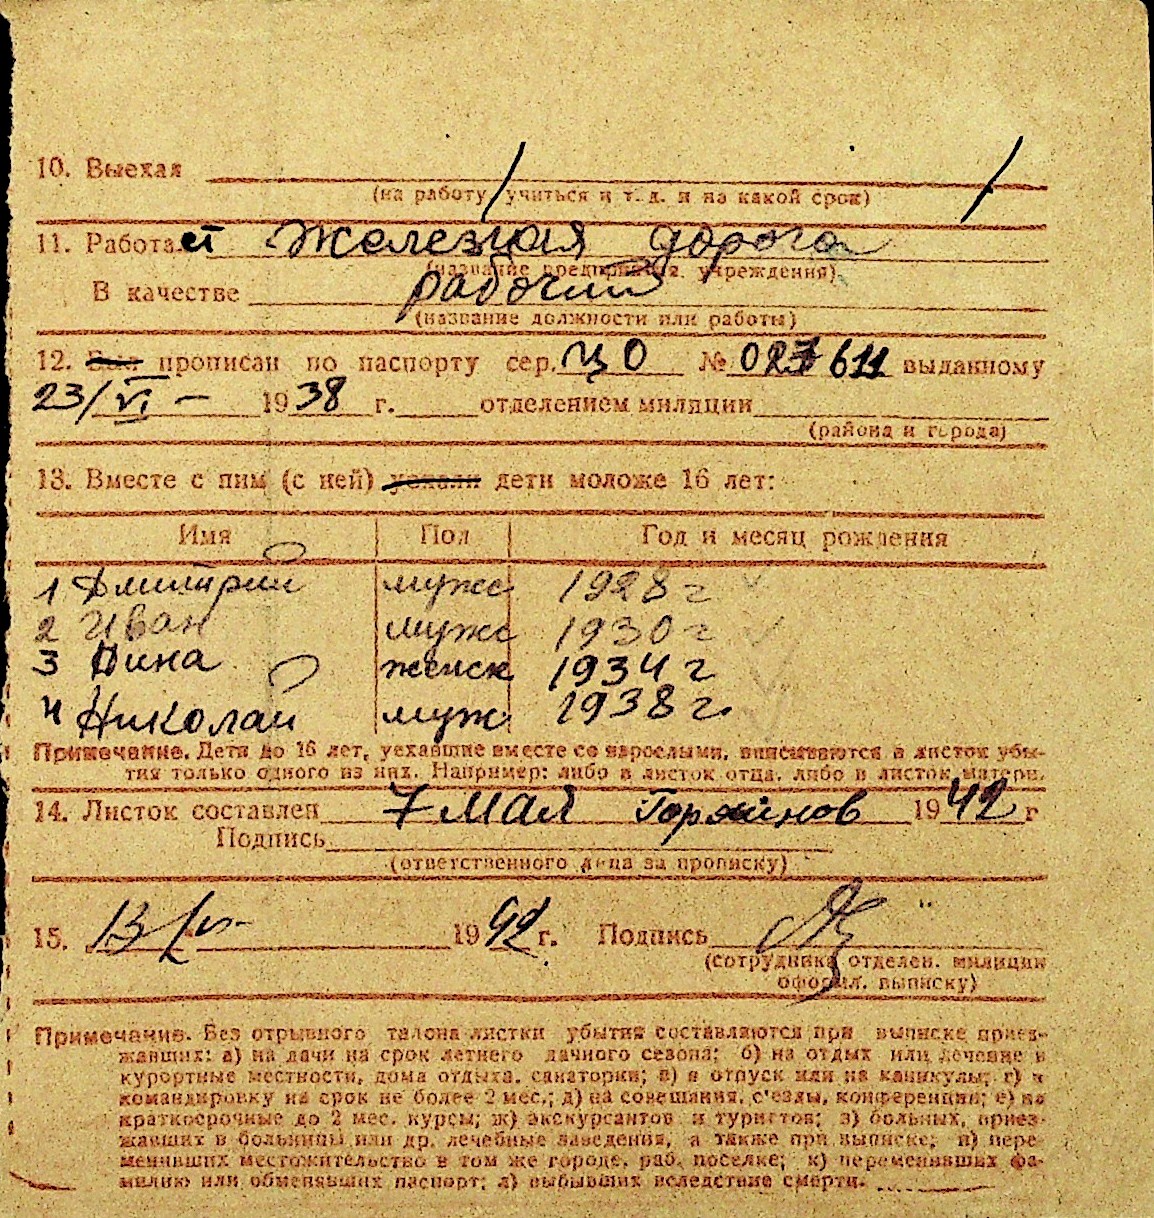 10. Выехал
(на работу, учиться и т. д. и на какой срок)
11. Работает Железная дорога
(название предприятия, учреждения)
В качестве рабочий
(название должности или работы)
12. Был прописан по паспорту сер. ЦО № 027611 выданному
23/VI - 1938 г. отделением милиции
(района и города)
13. Вместе с ним (с ней) уехали дети моложе 16 лет:
Имя Пол Год и месяц рождения
1 Дмитрий мужс 1928 г
2 Иван мужс 1930 г
3 Нина женск 1934 г
4 Николай муж 1938 г.
Примечание. Дети до 16 лет, уехавшие вместе со взрослыми, вписываются в листок убы-
тия только одного из них. Например: либо в листок отца, либо в листок матери.
14. Листок составлен 7 мая 1942 г
Подпись
(ответственного лица за прописку)
15. 13/V- 1942 г. Подпись
(сотрудника отделен. милиции
оформл. выписку)
Примечание. Без отрывного талона листки убытия составляются при выписке приез-
жавших: а) на дачи на срок летнего дачного сезона; б) на отдых или лечение в
курортные местности, дома отдыха, санатории; в) в отпуск или на каникулы; г) в
командировку на срок не более 2 мес.; д) на совещания, с'езды, конференции; е) на
краткосрочные до 2 мес. курсы; ж) экскурсантов и туристов; з) больных, приез-
жавших в больницы или др. лечебные заведения, а также при выписке; и) пере-
менивших местожительство в том же городе, раб. поселке; к) переменивших фа-
милию или обменявших паспорт; л) выбывших вследствие смерти.